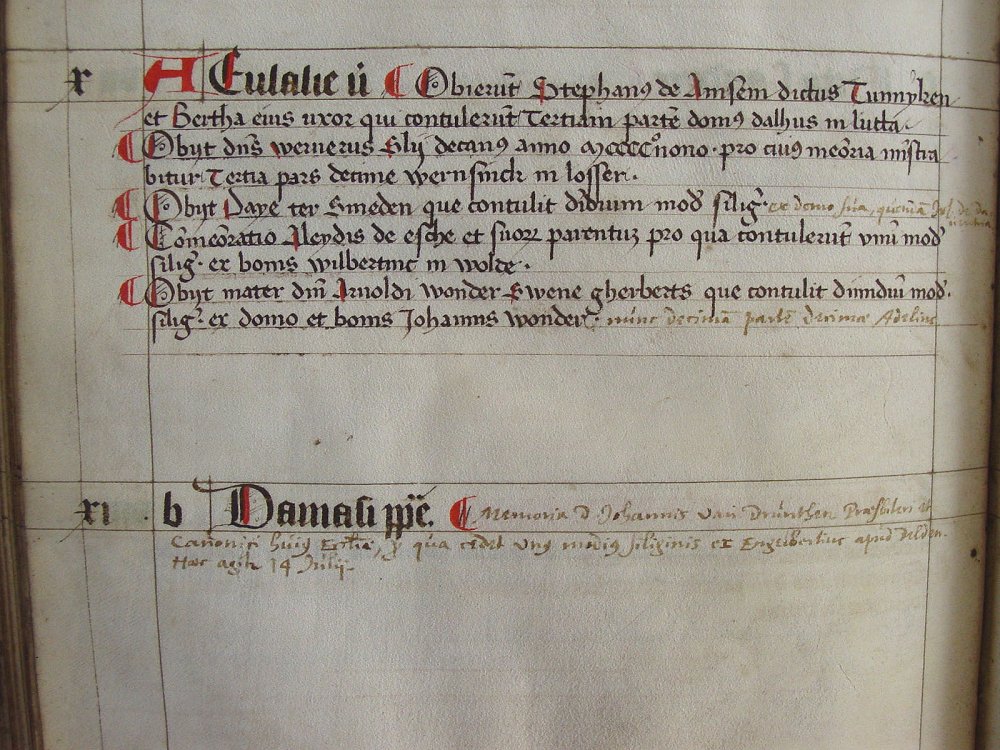 x A Eulalie v̄ Obierūt Stephanꝰ de Amsem dictus Tunnyken
et Bertha eius uxor qui contulerūt Tertiam partē domꝰ dalhus in lutta.
Obijt dn̄s wernerus Slij decanꝰ anno Mccccᵒnono. pro cuius meōria mīstra
bitur Tertia pars decime wernsinck in losser.
Obijt Daye ter Smeden que contulit didium mod̄ silig̃. ex domo sua,
Cōmeōratio Aleydis de esche et suoꝝ parentuꝫ pro qua contulerūt vnū mod̄
silig̃. ex bonis wilbertinc in wolde.
Obijt mater dn̄i Arnoldi wonder Swene gherberts que contulit dimdiū mod̄.
silig̃. ex domo et bonis Johannis wonder. nunc decimā partē decimæ
xi b Damasi ppē. Memoria D Johannis van Drunthen Præsbiteri et
Canonici huiꝰ Eccliæ, p̱ qua cedet vnꝰ modiꝰ siliginis ex Engelbertinc apud Delden.
Hæc agitr̄ 14 Julij.